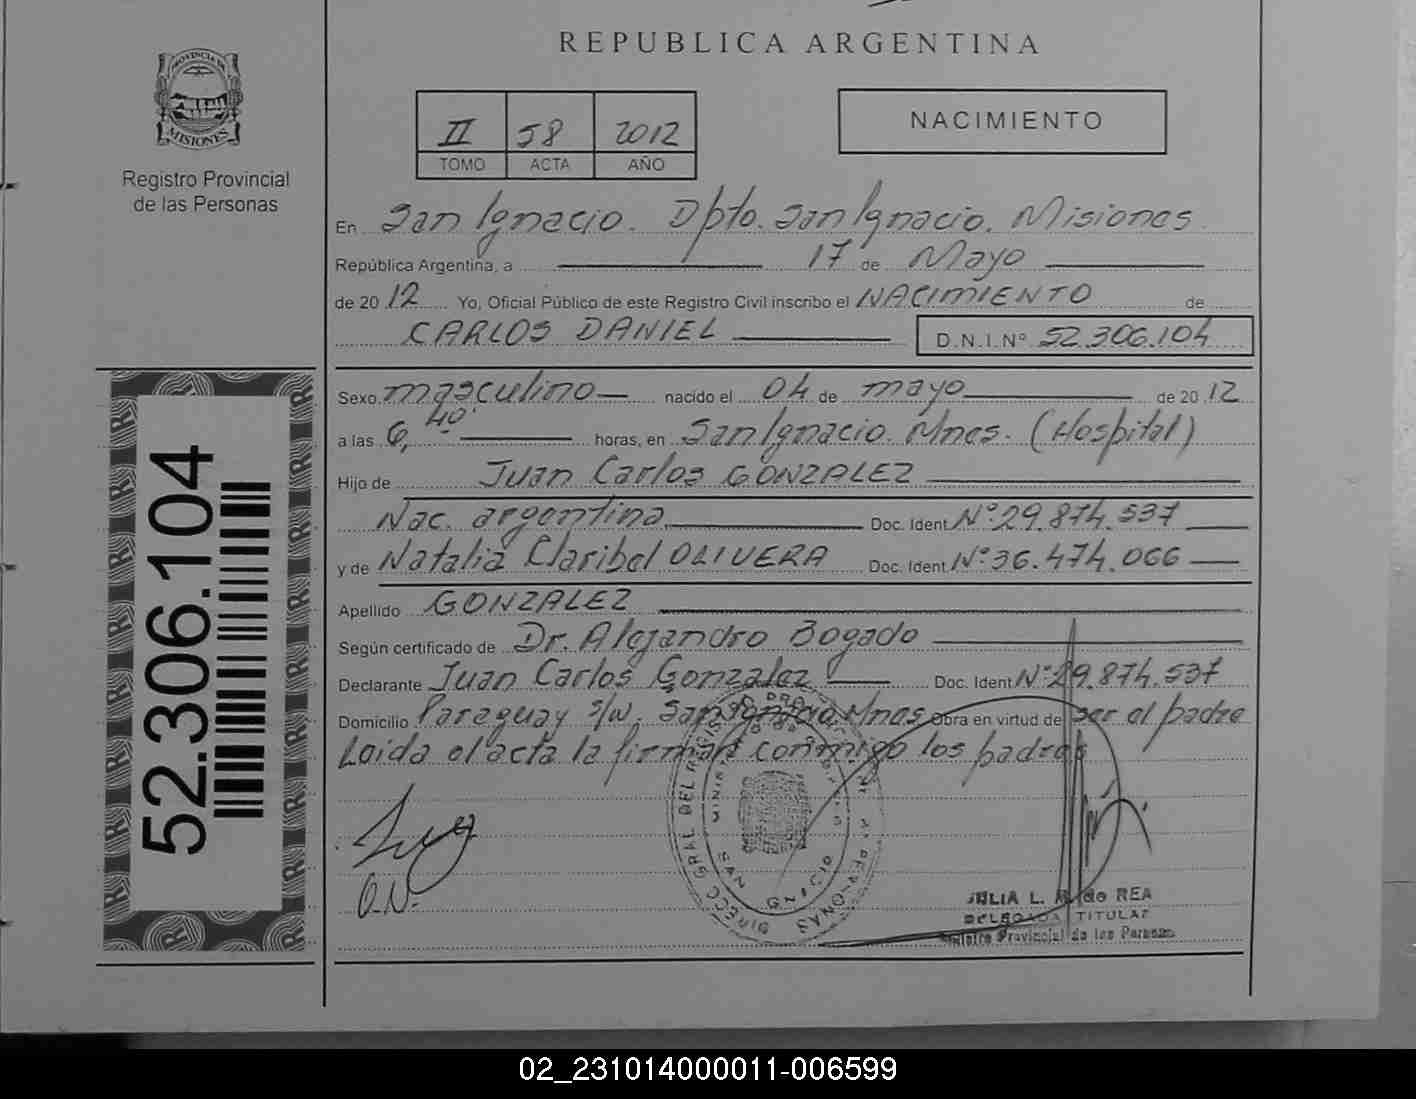 REPUBLICA ARGENTINA
PROVINCIA DE
MISIONES
Registro Provincial
de las Personas
II 58 2012
TOMO ACTA AÑO
NACIMIENTO
En San Ignacio. Dpto. San Ignacio. Misiones
República Argentina, a 17 de Mayo
de 2012 Yo, Oficial Público de este Registro Civil inscribo el NACIMIENTO de
CARLOS DANIEL D.N.I.Nº 52.306.104
Sexo masculino nacido el 04 de mayo de 2012
a las 6,40' horas, en San Ignacio. Mnes. (Hospital)
Hijo de Juan Carlos GONZALEZ
Nac. argentina Doc. Ident. Nº 29.874.537
y de Natalia Claribel OLIVERA Doc. Ident. Nº 36.474.066
Apellido GONZALEZ
Según certificado de Dr. Alejandro Bogado
Declarante Juan Carlos Gonzalez Doc. Ident. Nº 29.874.537
Domicilio Paraguay s/w. San Ignacio Mnes Obra en virtud de ser el padre
Leida el acta la firman conmigo los padres
O.N.
52.306.104
DIRECC GRAL DEL REGIS PERSONAS
SAN IGNACIO
JULIA L. de REA
DELEGADA TITULAR
Registro Provincial de las Personas
02_231014000011-006599